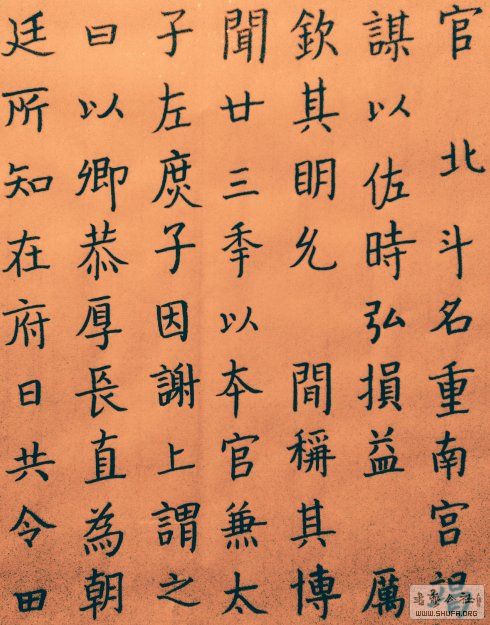 官 北斗名重南宫
謀以佐時弘損益 厲
欽其眀允 間稱其博
聞廿三秊以夲官兼太
子左庶子因謝上謂之
曰以卿恭厚長直為朝
廷所知在府日共令田
WWW.SHUFA.ORG